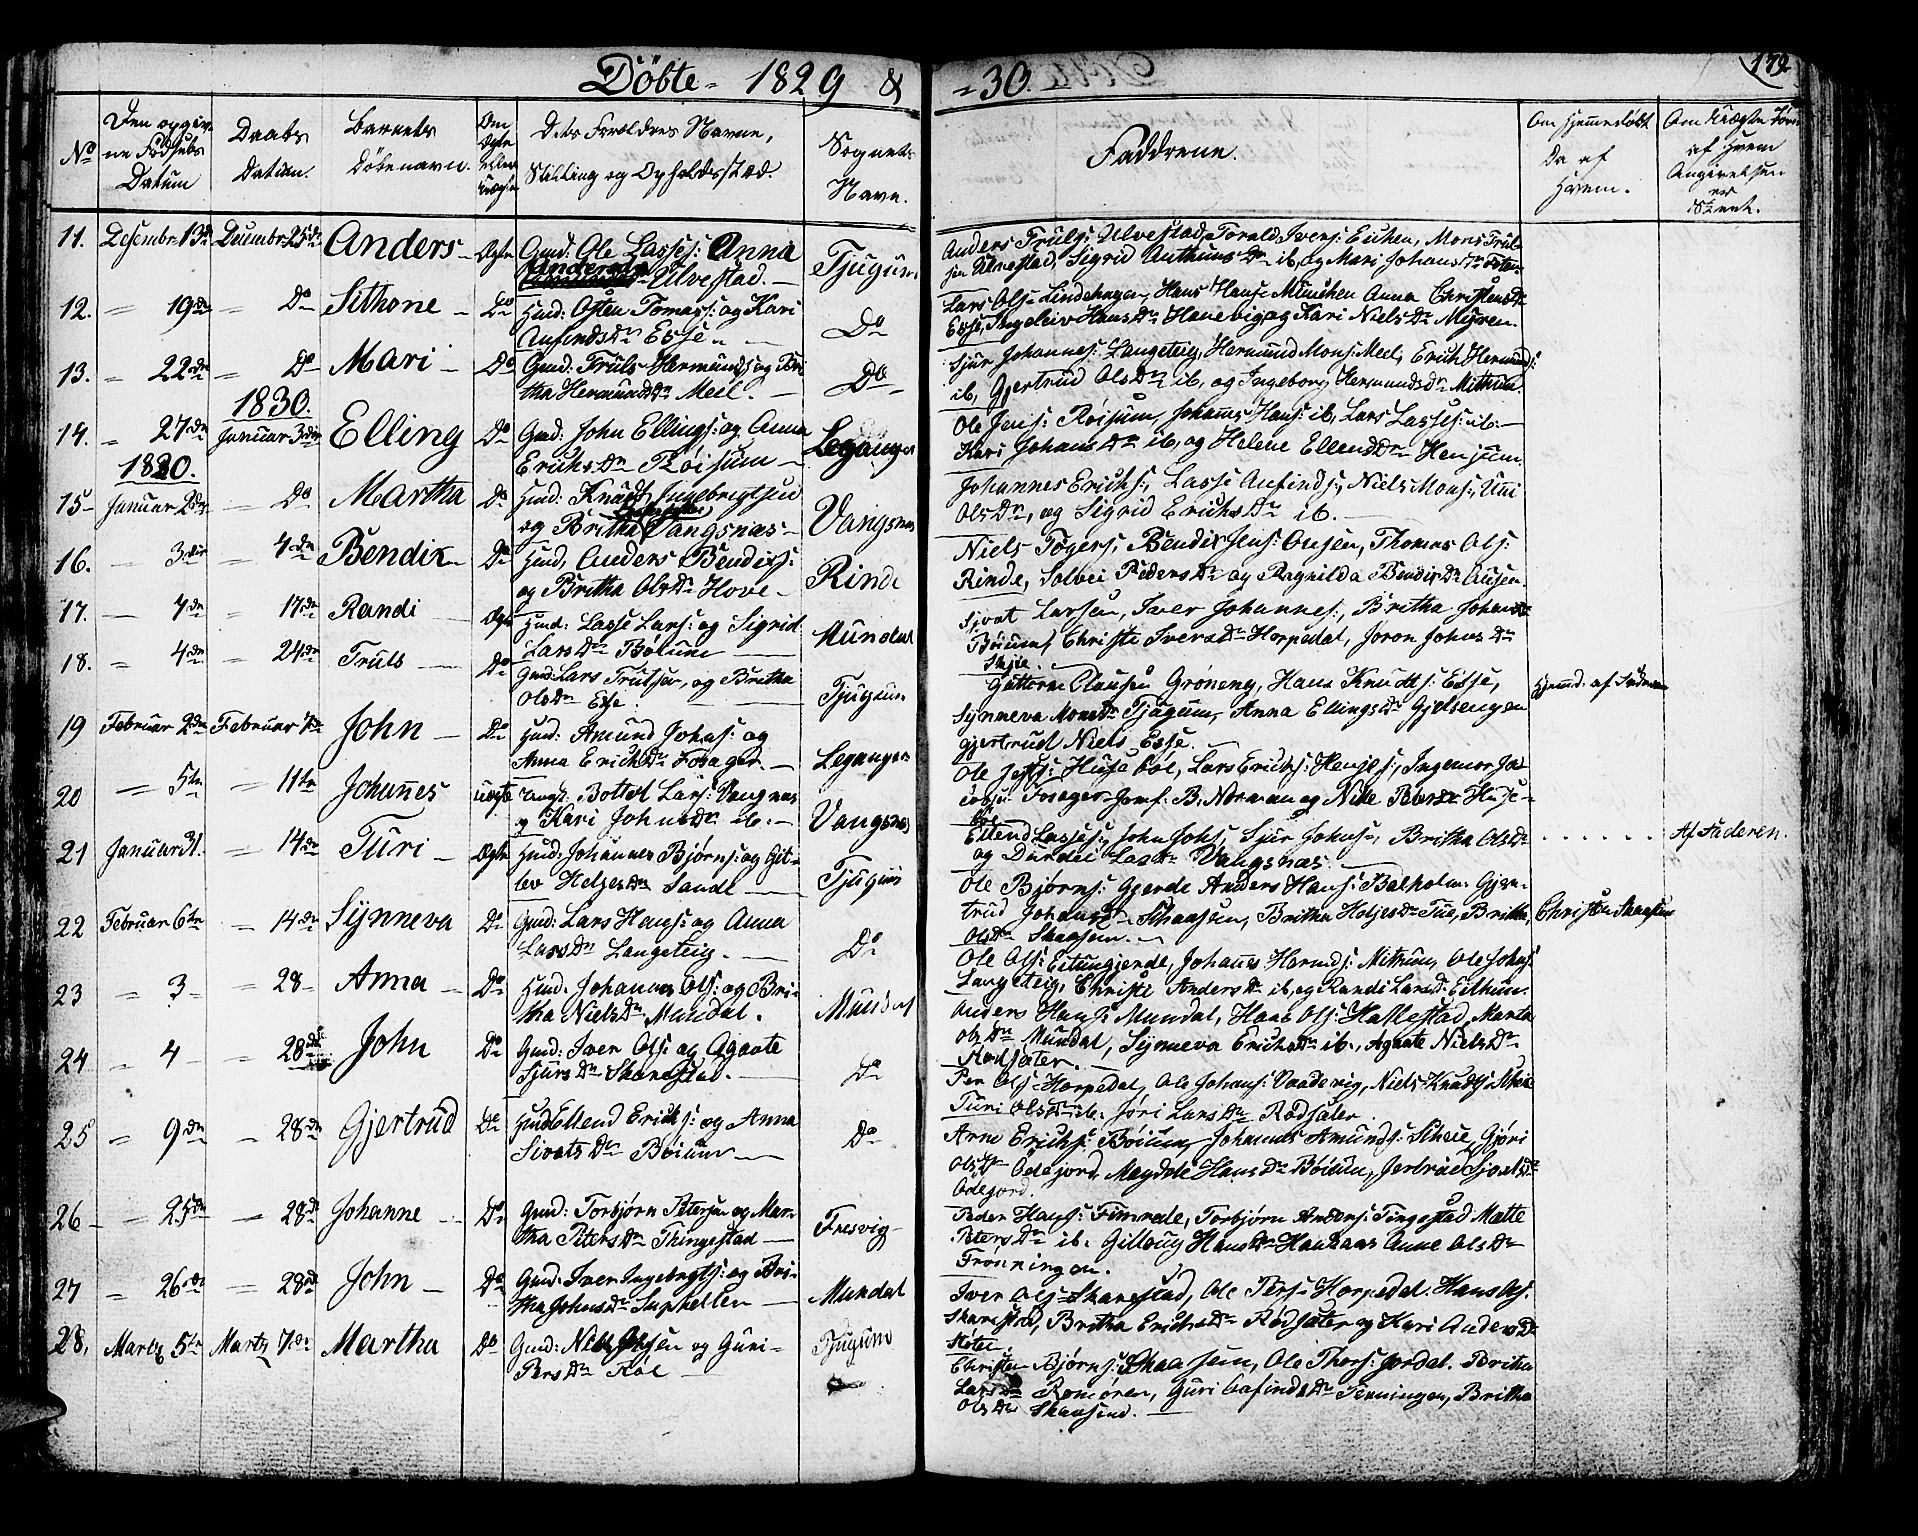 Döbte = 1829 &
= 30.
172
No
Den opgiv-
ne Födsels
Datum
Daabs
Datum.
Barnets
Döbenavn.
Den
Ægte
eller
Uægte
Dets Forældres Navne,
Stilling og Opholdsstæd.
Sognets
Navn.
Faddrene.
Om Hjemmedöbt
Da af
Hvem.
Om Uægte Födt
af Hvem
Angivelsen
er
Skeet.
11. Desembr 13de Decembr 25de Anders Ægte Gmd: Ole Lasses: Anna
Andersdr Ulvestad. Tjugum
Anders Truls: Ulvestad, Torald Ivers: Eithen, Mons Truls
sen Ulvestad, Sigrid Anthuns Dr ib, og Mari Johans Dr
12. = 19de = Do Sithone Do Hmd: Osten Tomas: og Kari
Anfinds Dr Esse Do
Lars Ols: Lindehagen, Hans Hans: München Anna Christens Dr
Esse, Ingeleiv Hans Dr Hanevig og Kari Niels Dr Myren.
13. = 22de = Do Mari Do Gmd: Truls Hermunds: og Bri
tha Hermunds Dr Meel. Do
Sjur Johannes: Langeteig, Hermund Mons: Meel, Erich Hermunds:
ib, Gjertrud Ols Dr ib, og Ingeborg Hermunds Dr Mithun
1830.
14. = 27de Januar 3de Elling Do Gmd: John Ellings: og Anna
Erichs Dr Röisum Leganger
Ole Jens: Röisum, Johanns Hans: ib, Lars Lasses: ib.
Kari Johans Dr ib, og Helene Ellends Dr Henjum.
1830.
15 Januar 2den Do Martha Do Hmd: Knudt Ingebrigtsen
og Britha Vangsnæs Vangsnæs
Johannes Erichs:, Lasse Anfinds:, Niels Mons:, Uni
Ols Dr, og Sigrid Erichs Dr ib.
16. 3die = 4de Bendix Do Hmd, Anders Bendixs:
og Britha Ols Dr Hove Rinde
Niels Togers, Bendix Jens: Ousen, Thomas Ols:
Rinde, Solvei Peders Dr og Ragnilda Bendix Dr Ousen.
17. 4de = 17de Randi Ægte Hmd: Lasse Lars: og Sigrid
Lars Dr Böium Mundal
Sjvat Larsen, Iver Johannes:, Britha Johans Dr
Böium, Christi Ivers Dr Horpedal, Joron Johns Dr
Skjie.
18. = 4de = 24de Truls Do Gmd: Lars Trulsen, og Britha
Ols Dr Esse Tjugum
Guttorm Clausen Gröneng, Hans Knudts: Esse,
Synneva Mons Dr Tjugum, Anna Ellings Dr Gjelsengen
gjertrud Niels Esse.
Hjemd. af Faderen
19 Februar 2de Februar 7de John Do Hmd: Amund Johns: og
Anna Erichs Dr Fosager Leganger
Ole Jens: Huseböe, Lars Erichs: Henjes:, Ingemor Ja
cobs: Fosager Jomf: B. Norman og Nille Peders Dr Huse-
böe
20 = 5te = 11te Johannes uægte Ungk. Bottol Lars: Vangnæs
og Kari Johns Dr ib. Vangsnæs
Ellend Lasses:, John Johs:, Sjur Johns:, Britha Ols Dr
og Durdei Las Dr Vangsnæs.
Af Faderen.
21 Januar 31. = 14de Turi Ægte Hmd: Johannes Björns: og Git-
lev Heljes Dr Sande Tjugum
Ole Björns: Gjerde Anders Hans: Balholm. Gjer-
trud Johans Dr Skaasen, Britha Holjes Dr Tue, Britha
Ols Dr Skaasen.
Christen Skaasen
22 Februar 6te = 14de Synneva Do Gmd: Lars Hans: og Anna
Lars Dr Langeteig. Do
Ole Ols: Eitungjerde, Johans Hermds: Mitrum, Ole Johns:
Langeteig, Christi Anders Dr ib, og Randi Lars Dr Eithun.
23 = 3 = 28 Anna Do Hmd: Johannes Ols: og Bri-
tha Niels Dr Mundal. Mundal
Anders Hans: Mundal, Hans Ols: Hallestad, Marta
Ols Dr Mundal, Synneva Erichs Dr ib., Agaate Niels Dr
Rödsæter.
24 = 4 = 28de John Do Gmd: Iver Ols: og Agaate
Sjurs Dr Skarestad. Do
Per Ols: Horpedal, Ole Johans: Vaadevig, Niels Knudts: Skeie
Turi Ols Dr ib. Jöri Lars Dr Rödsæter.
25 = 9de = 28de Gjertrud Do Hmd Ellend Erichs: og Anna
Sivats Dr Böium Do
Arne Erichs: Böium, Johannes Amunds: Skeie, Gjöri
Ols Dr Ödegjord, Magdeli Hans Dr Böium, Jertrud Sjvats Dr
Ödegjord.
26 = 25de = 28de Johanne Do Gmd: Torbjörn Petersen og Mar-
tha Peters Dr Thingestad Fresvig
Peder Hans: Fimrede, Torbjörn Anders: Tingestad Mætte
Peters Dr ib. Gillaug Hans Dr Hanhaas Anne Ols Dr
Frönningen.
27 = 26de = 28de John Do Gmd: Iver Ingebrgts: og Bri-
tha Johns Dr Suphellen Mundal
Iver Ols: Skarestad, Ole Pers: Horpedal. Hans Ols:
Skarestad, Britha Erichs Dr Rödsæter og Kari Anders Dr
28. Martz 5te Martz 7de Martha Do Gmd: Niels Olsen og Guri
Pers Dr Köl Tjugum
Christen Björns: Skaasen, Ole Thors: Jordal. Britha
Lars Dr Romören, Guri Anfinds Dr Fenningen, Britha
Ols Dr Skaasend.